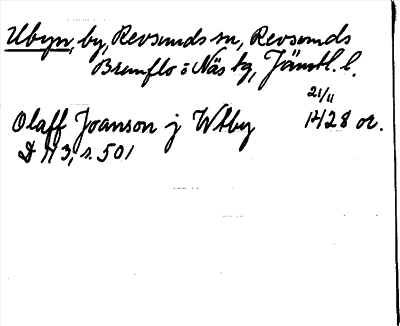 Utbyn, by, Revsunds sn, Revsunds
Brunflo o Näs tg, Jämtl. l.
21/11
Olaff Joanson j Wtby 1428 or.
D H 3, s. 501